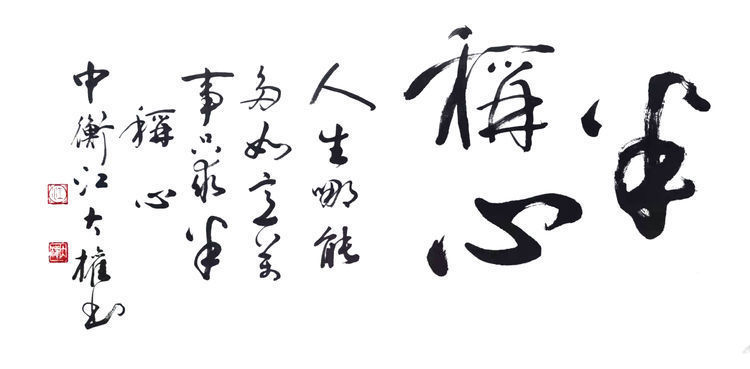 半
稱心
人生哪能
多如意萬
事只求半
稱心
中衡江大權书